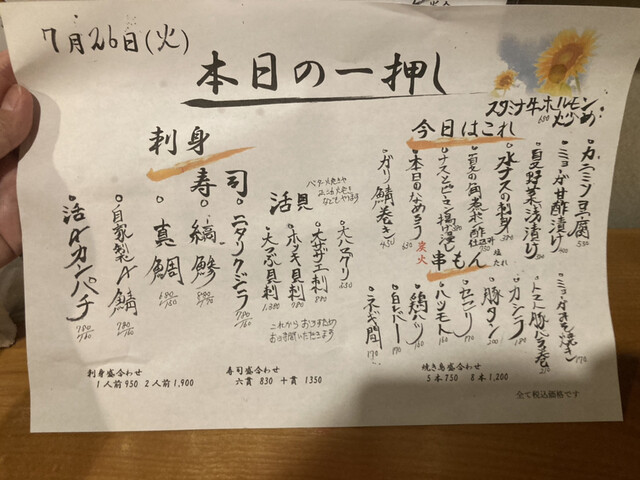 7月26日(火)
本日の一押し
スタミナ牛ホルモン炒め
650
今日はこれ
カニミソ豆腐
550
ミョウガ甘酢漬け
400
夏野菜浅漬け
水ナスの刺身
380
夏の角煮
ナスとピーマン揚げ浸し
本日のなめろう
650
ガリ鯖巻き
450
炭火
串もん
ミョウガ
焼き
170
トマト豚バラ巻
カシラ
180
豚タン
セセリ
ハツモト
鶏ハツ
160
白レバー
ネギ間
170
刺身
寿司
活貝
バター焼きや
酒焼き
なども
大ハマグリ
大サザエ刺
880
ホッキ貝刺
880
大つぶ貝刺
1.380
これから
お時間いただきます
ニタリクジラ
780/760
縞鯵
真鯛
自家製〆鯖
780/760
活〆カンパチ
780/760
刺身盛合わせ
1人前950 2人前1,900
寿司盛合わせ
六貫 830 十貫 1350
焼き鳥盛合わせ
5本750 8本1,200
全て税込価格です